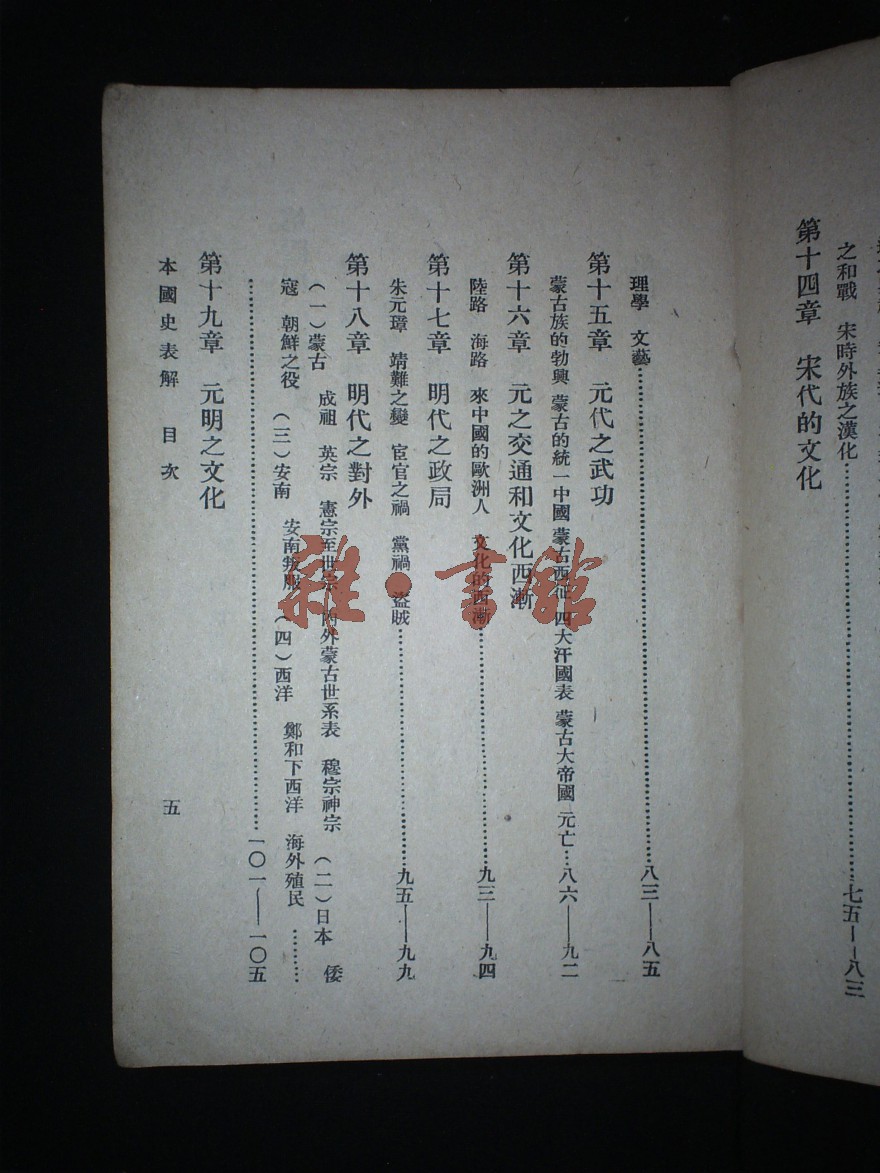 之和戰　宋時外族之漢化……七五——八三
第十四章　宋代的文化
理學　文藝……八三——八五
第十五章　元代之武功
蒙古族的勃興　蒙古的統一中國　蒙古西征　四大汗國表　蒙古大帝國　元亡…八六——九二
第十六章　元之交通和文化西漸
陸路　海路　來中國的歐洲人　文化的西漸……九三——九四
第十七章　明代之政局
朱元璋　靖難之變　宦官之禍　黨禍　盜賊……九五——九九
第十八章　明代之對外
（一）蒙古　成祖　英宗　憲宗至世宗　內外蒙古世系表　穆宗神宗　（二）日本　倭
寇　朝鮮之役　（三）安南　安南叛服　（四）西洋　鄭和下西洋　海外殖民……
……一〇一——一〇五
第十九章　元明之文化
本國史表解　目次　五
雜·書館